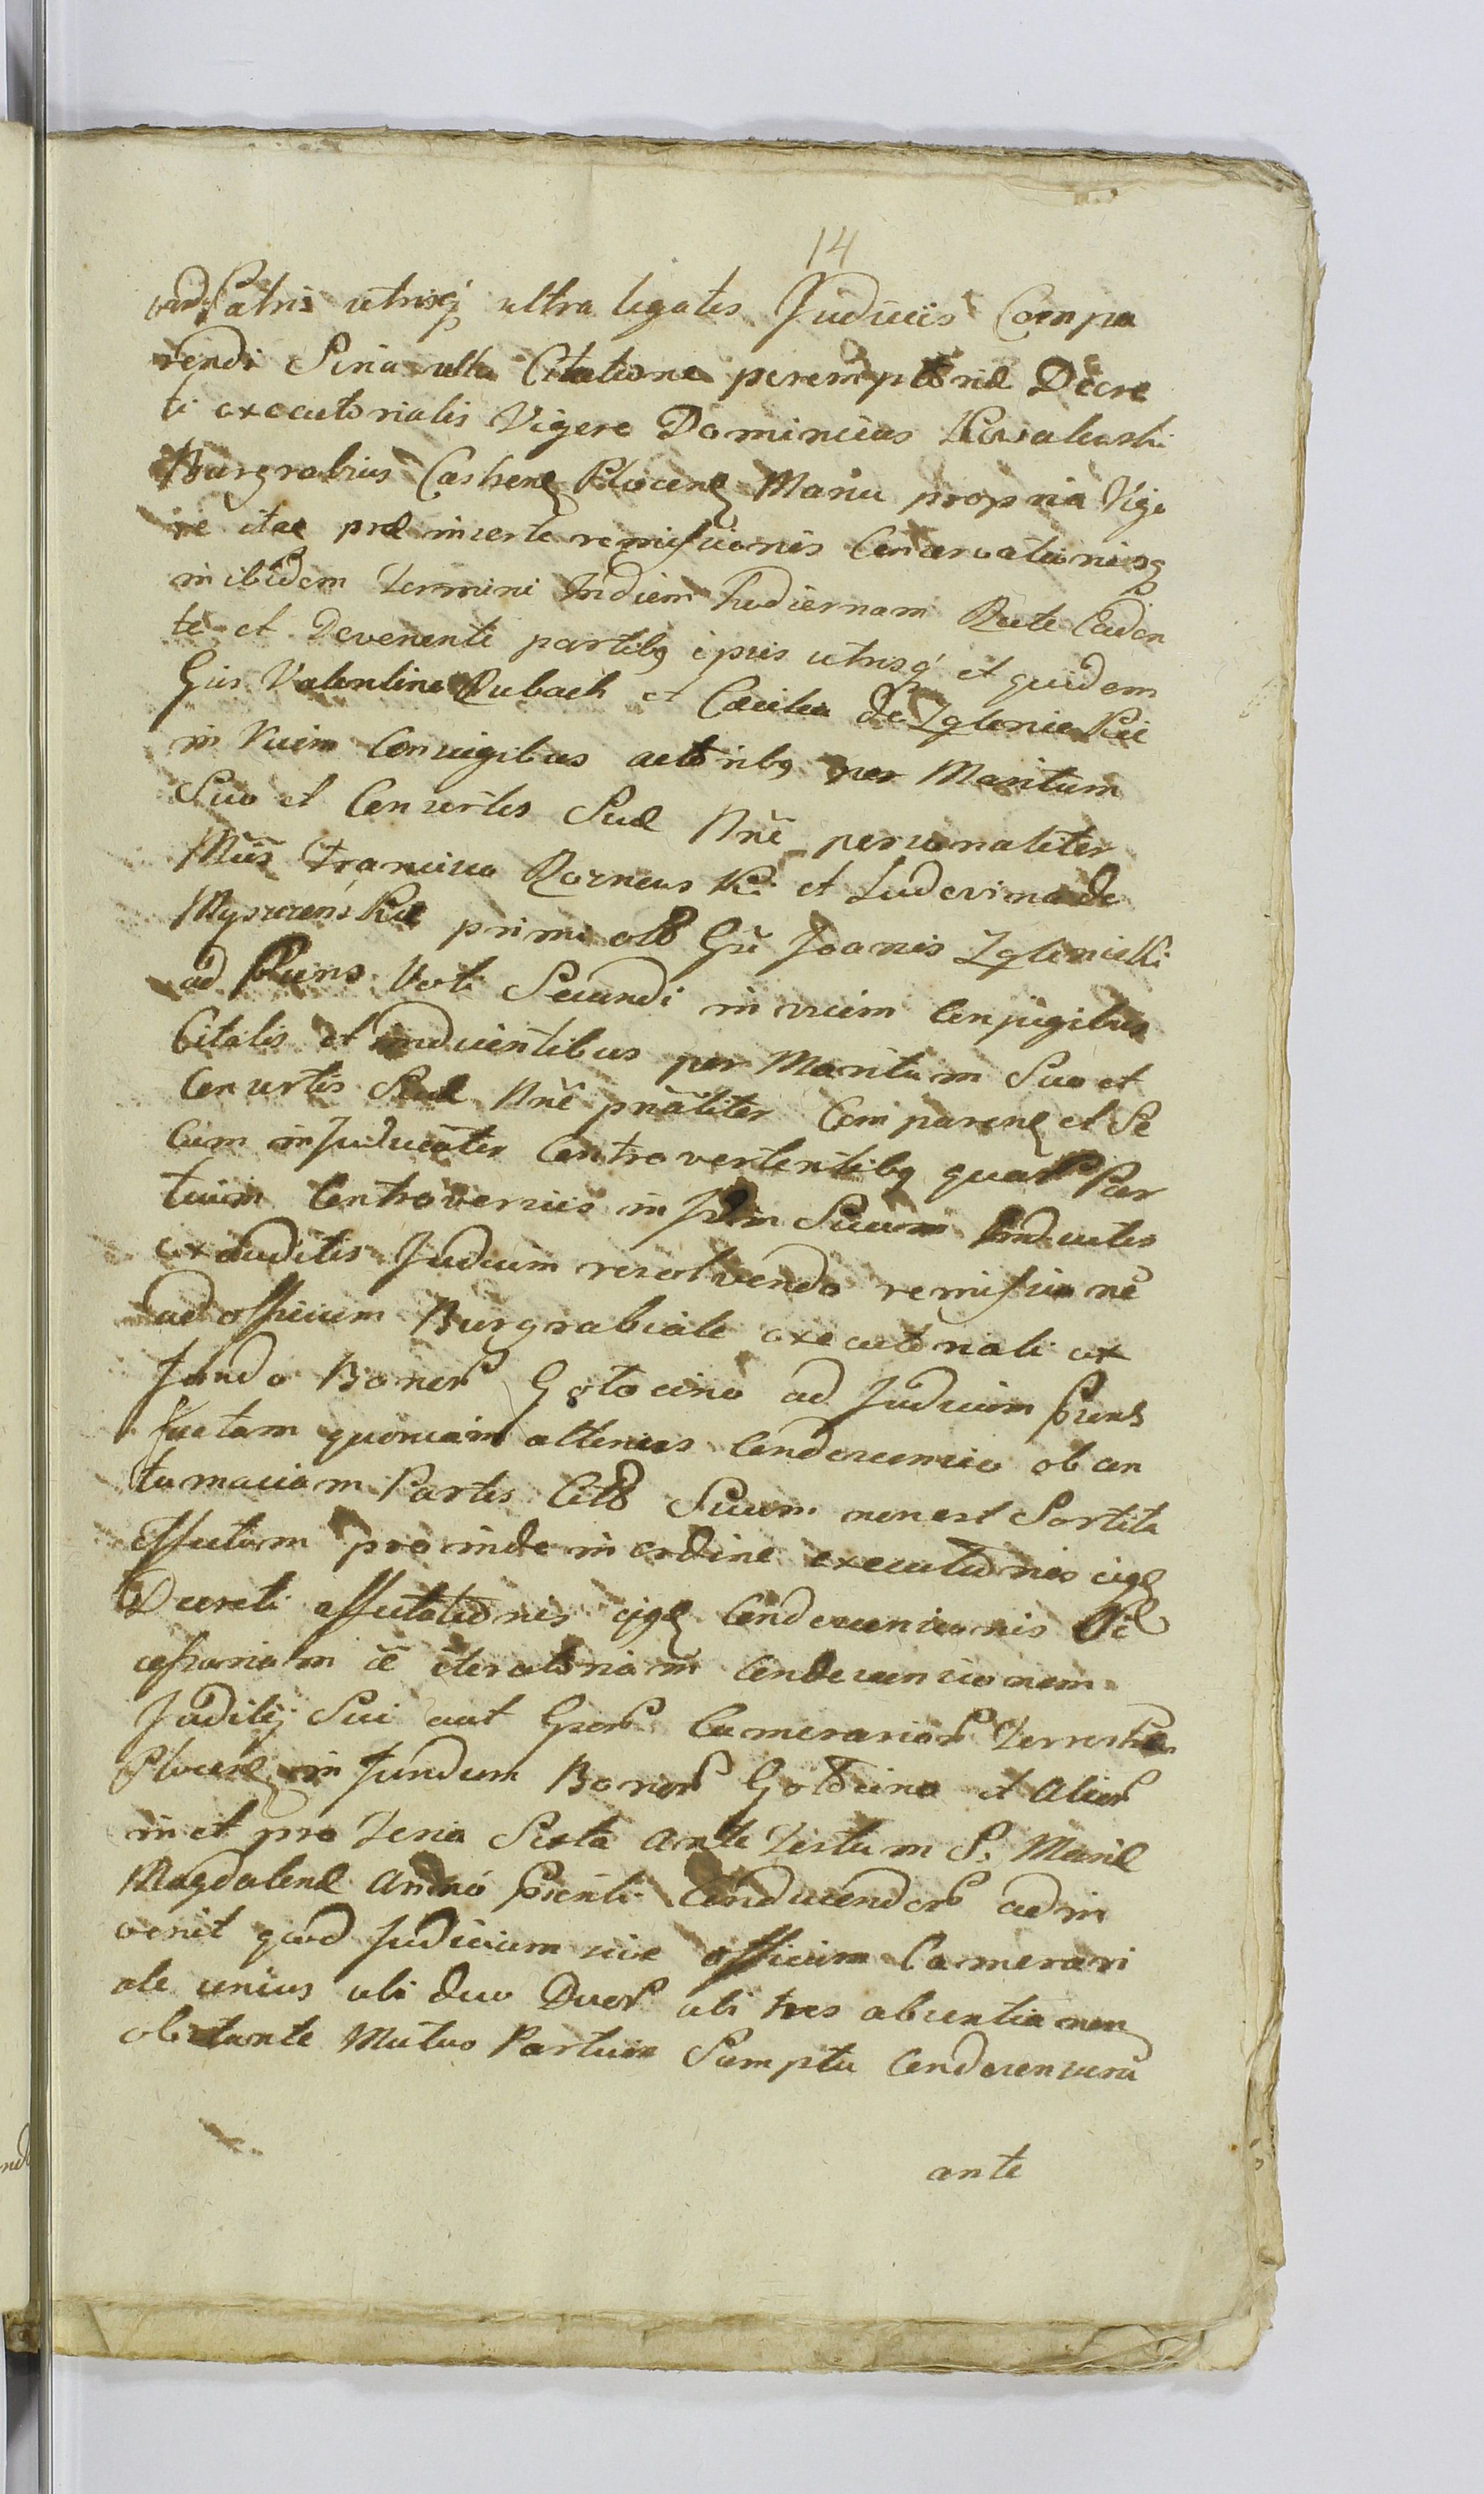 14
vandi Patris utrisq ultra legatis Judiciis Compa
rendi Sina ulla Citatione peremptoriæ Decre
ti executorialis Vigere Dominicus Kowalewski
Burgrabius Castren Plocen Manu propria Vigo
re itae præinserte remissionis Conservationisq
inibidem Termini Indiem hodiernam Rite Caden
te et Devenente partibq ipsis utrisq et quidem
Gīis Valentino Rubach et Cæcilia de Zglenickie
in vicim Conuigibus actoribq per Maritum
Suo et Consortis Suæ Nñe personaliter
Mīis Francisco Roznens Ki et Ludovina de
primi olð Gīi Joanis Zglenicki
ad præns Voti Secundi invicim Conjugibus
Citatis et inducentibus per Maritum Suo et
Consortis Suæ Nñe pñaliter Comparen et Se
Cum in Judicialiter Controvertentibq quar Par
tium Controversiis in Jdm Suum Inductis
exauditis Judicium resolvendo remissionē
ad officium Burgrabiale executoriali ex
fundo Bonor Gołocino ad Judicium præns
factam quoniam altenus Condescensio ob con
tumaciam Partis Citð Suum non est Sortita
effectum proinde in ordine executionis ejq
Decreti affectationis ejq Condescensionis Ne
cessariam ē iteratoriam Condescensionem
Judicij Sui aut Gsor Camerarior Terrestr
Plocen in fundum Bonor Gołocino et Alior
in et pro Feria Sexta ante Festum S. Mariæ
Magdalenæ Anno præsenti Conducendor adin
venit quod Judicium sive officium Camerari
ale unius ubi duo Duor ubi tres absentia non
obstante Mutuo Partium Sumptu Condescensura
ante